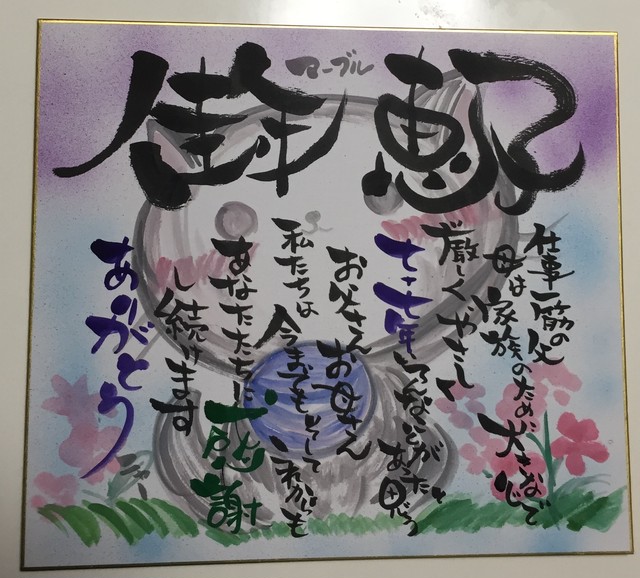 マーブル
仕事一筋の父
母は家族のために大きな心で
厳しくやさしく
七年いろんなことがあったと思う
お父さんお母さん
私たちは今までもそしてこれからも
あなたたちに感謝
し続けます
ありがとう